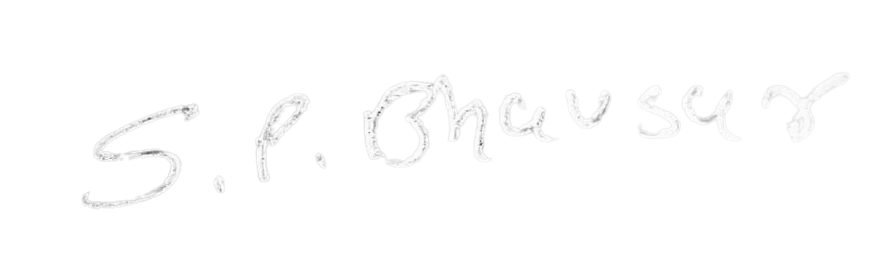 S. P. Bhausar